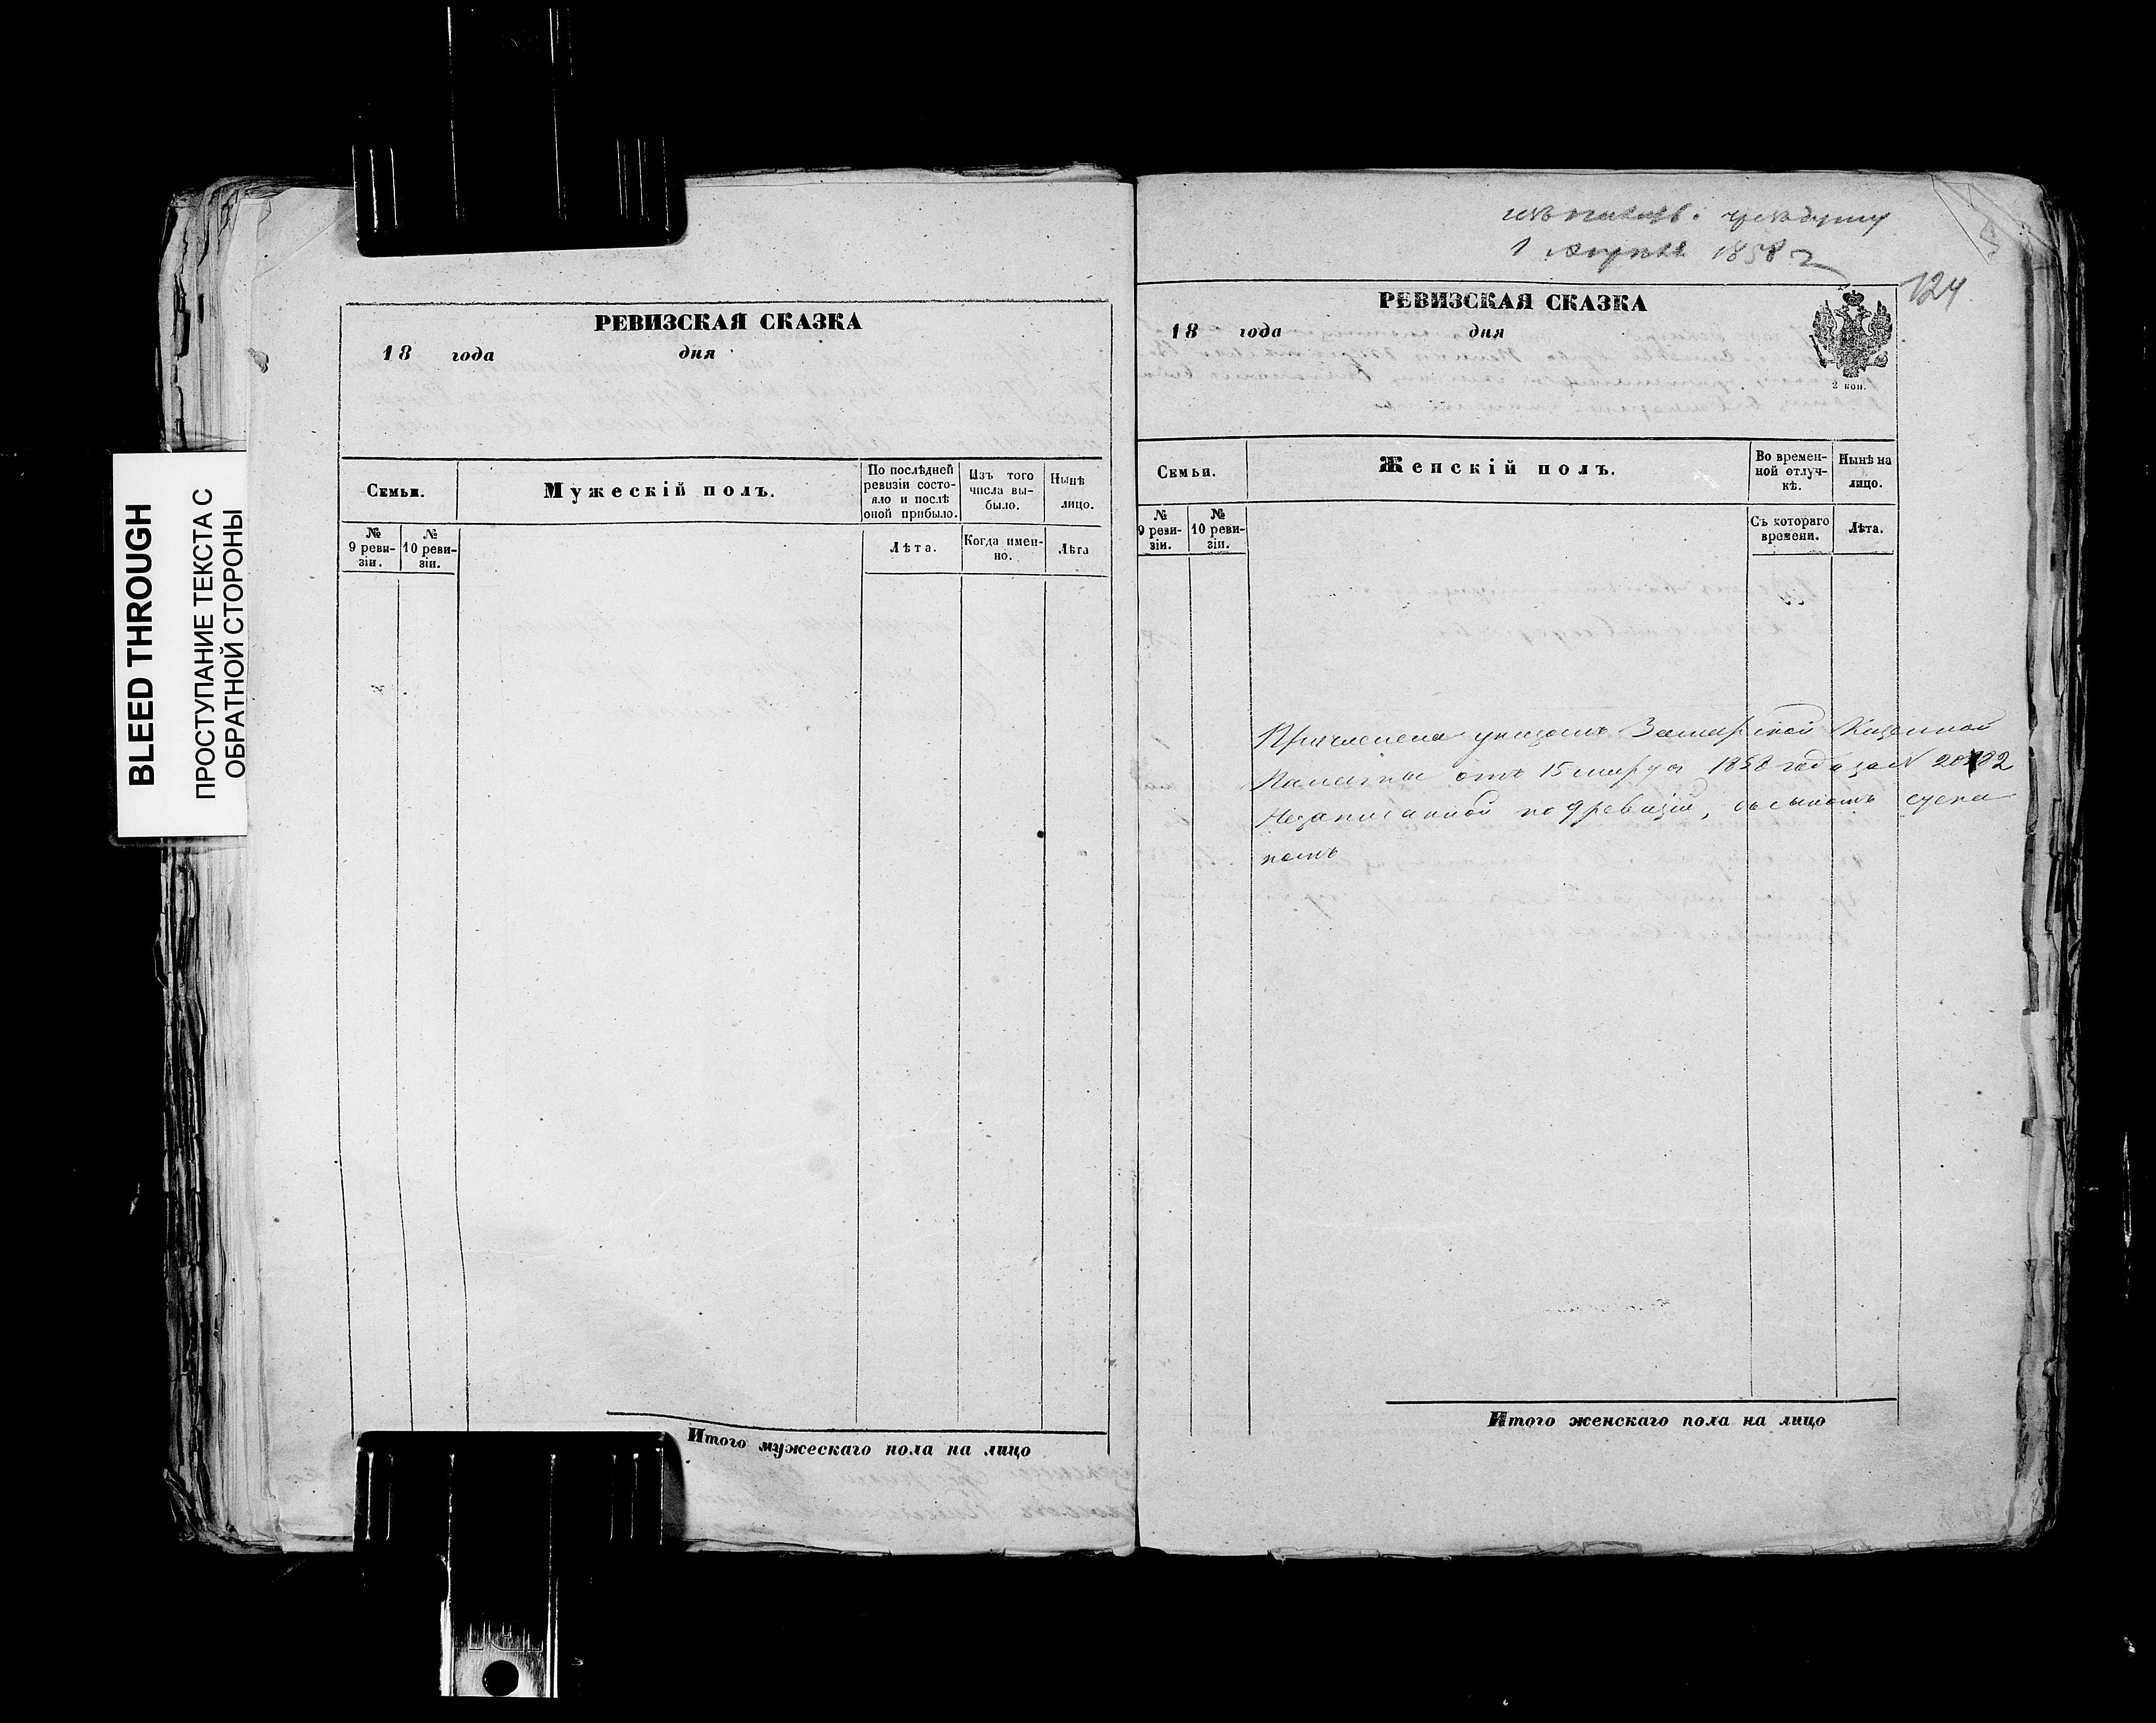 BLEED THROUGH
ПРОСТУПАНИЕ ТЕКСТА С
ОБРАТНОЙ СТОРОНЫ
РЕВИЗСКАЯ СКАЗКА
18 года дня
Семьи.
Мужескій полъ.
По послѣдней
ревизіи состо-
яло и послѣ
оной прибыло.
Изъ того
числа вы-
было.
Нынѣ
лицо.
№
9 реви-
зіи.
№
10 реви-
зіи.
Лѣта.
Когда имен-
но.
Лѣта
Итого мужескаго пола на лицо
1 апреля 1858 г
124
РЕВИЗСКАЯ СКАЗКА
18 года дня
2 коп.
Семьи.
Женскій полъ.
Во времен-
ной отлуч-
кѣ.
Нынѣ на
лицо.
№
9 реви-
зіи.
№
10 реви-
зіи.
Съ котораго
времени.
Лѣта.
Причислена указомъ Казенной
Палаты отъ 15 марта 1858 года за №
Незаписанной по 9 ревизіи, съ сыномъ
Итого женскаго пола на лицо